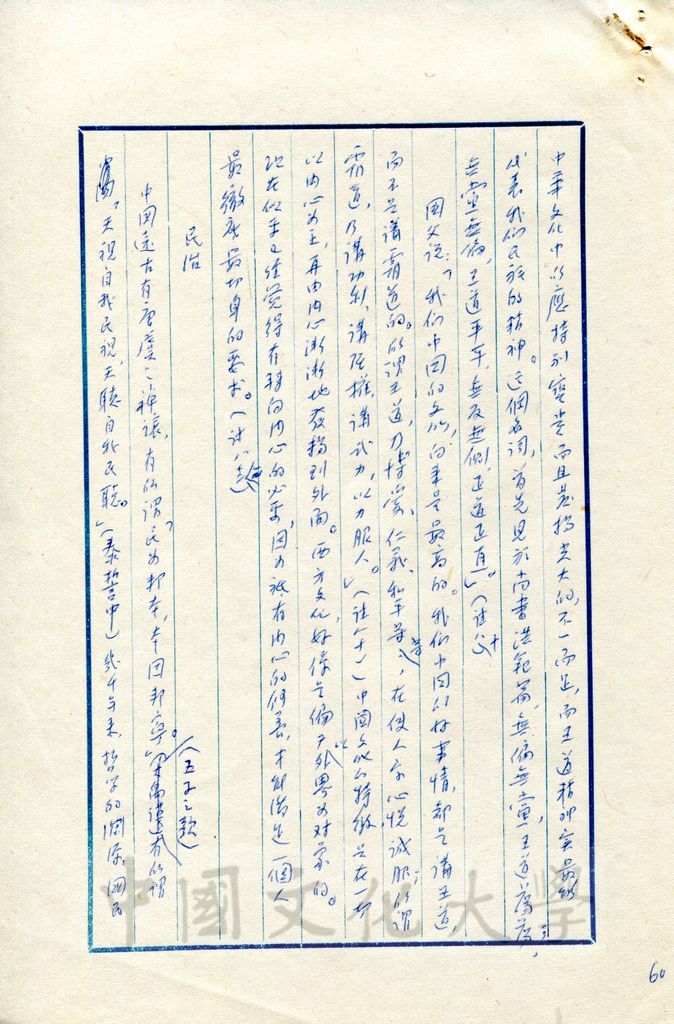 中華文化中的應特別寶貴而且發揚光大的,不一而足,而王道精神实最能
代表我们民族的精神。这個名词,首先見於尚書洪範篇,「無偏無黨,王道蕩蕩;
無黨無偏,王道平平,無反無側,王道正直」。(註十)
國父説:「我们中国的文化,向來是最高的。我们中国的好事情,都是講王道
而不是講霸道的。所谓王道,乃博愛、仁義、和平等等,在使人家心悦诚服;所谓
霸道,乃講功利,講强權,講武力,以力服人。」(註十一)中國文化的特徵是在一切
以内心为主,再由内心漸漸地發揚到外面。西方文化好像是偏於以外界为对象的。
现在似乎又经觉得有转向内心的必要,因为祇有内心的修養,才能做是一個人
最徹底最切身的要求。(註八)
民治
中國遠古有唐虞之禅讓,有所謂「民为邦本,本固邦寧。」(五子之歌)有所謂
「天視自我民視,天聽自我民聽。」(泰誓中)幾千年來,哲学的淵源,國民
60
中國文化大學